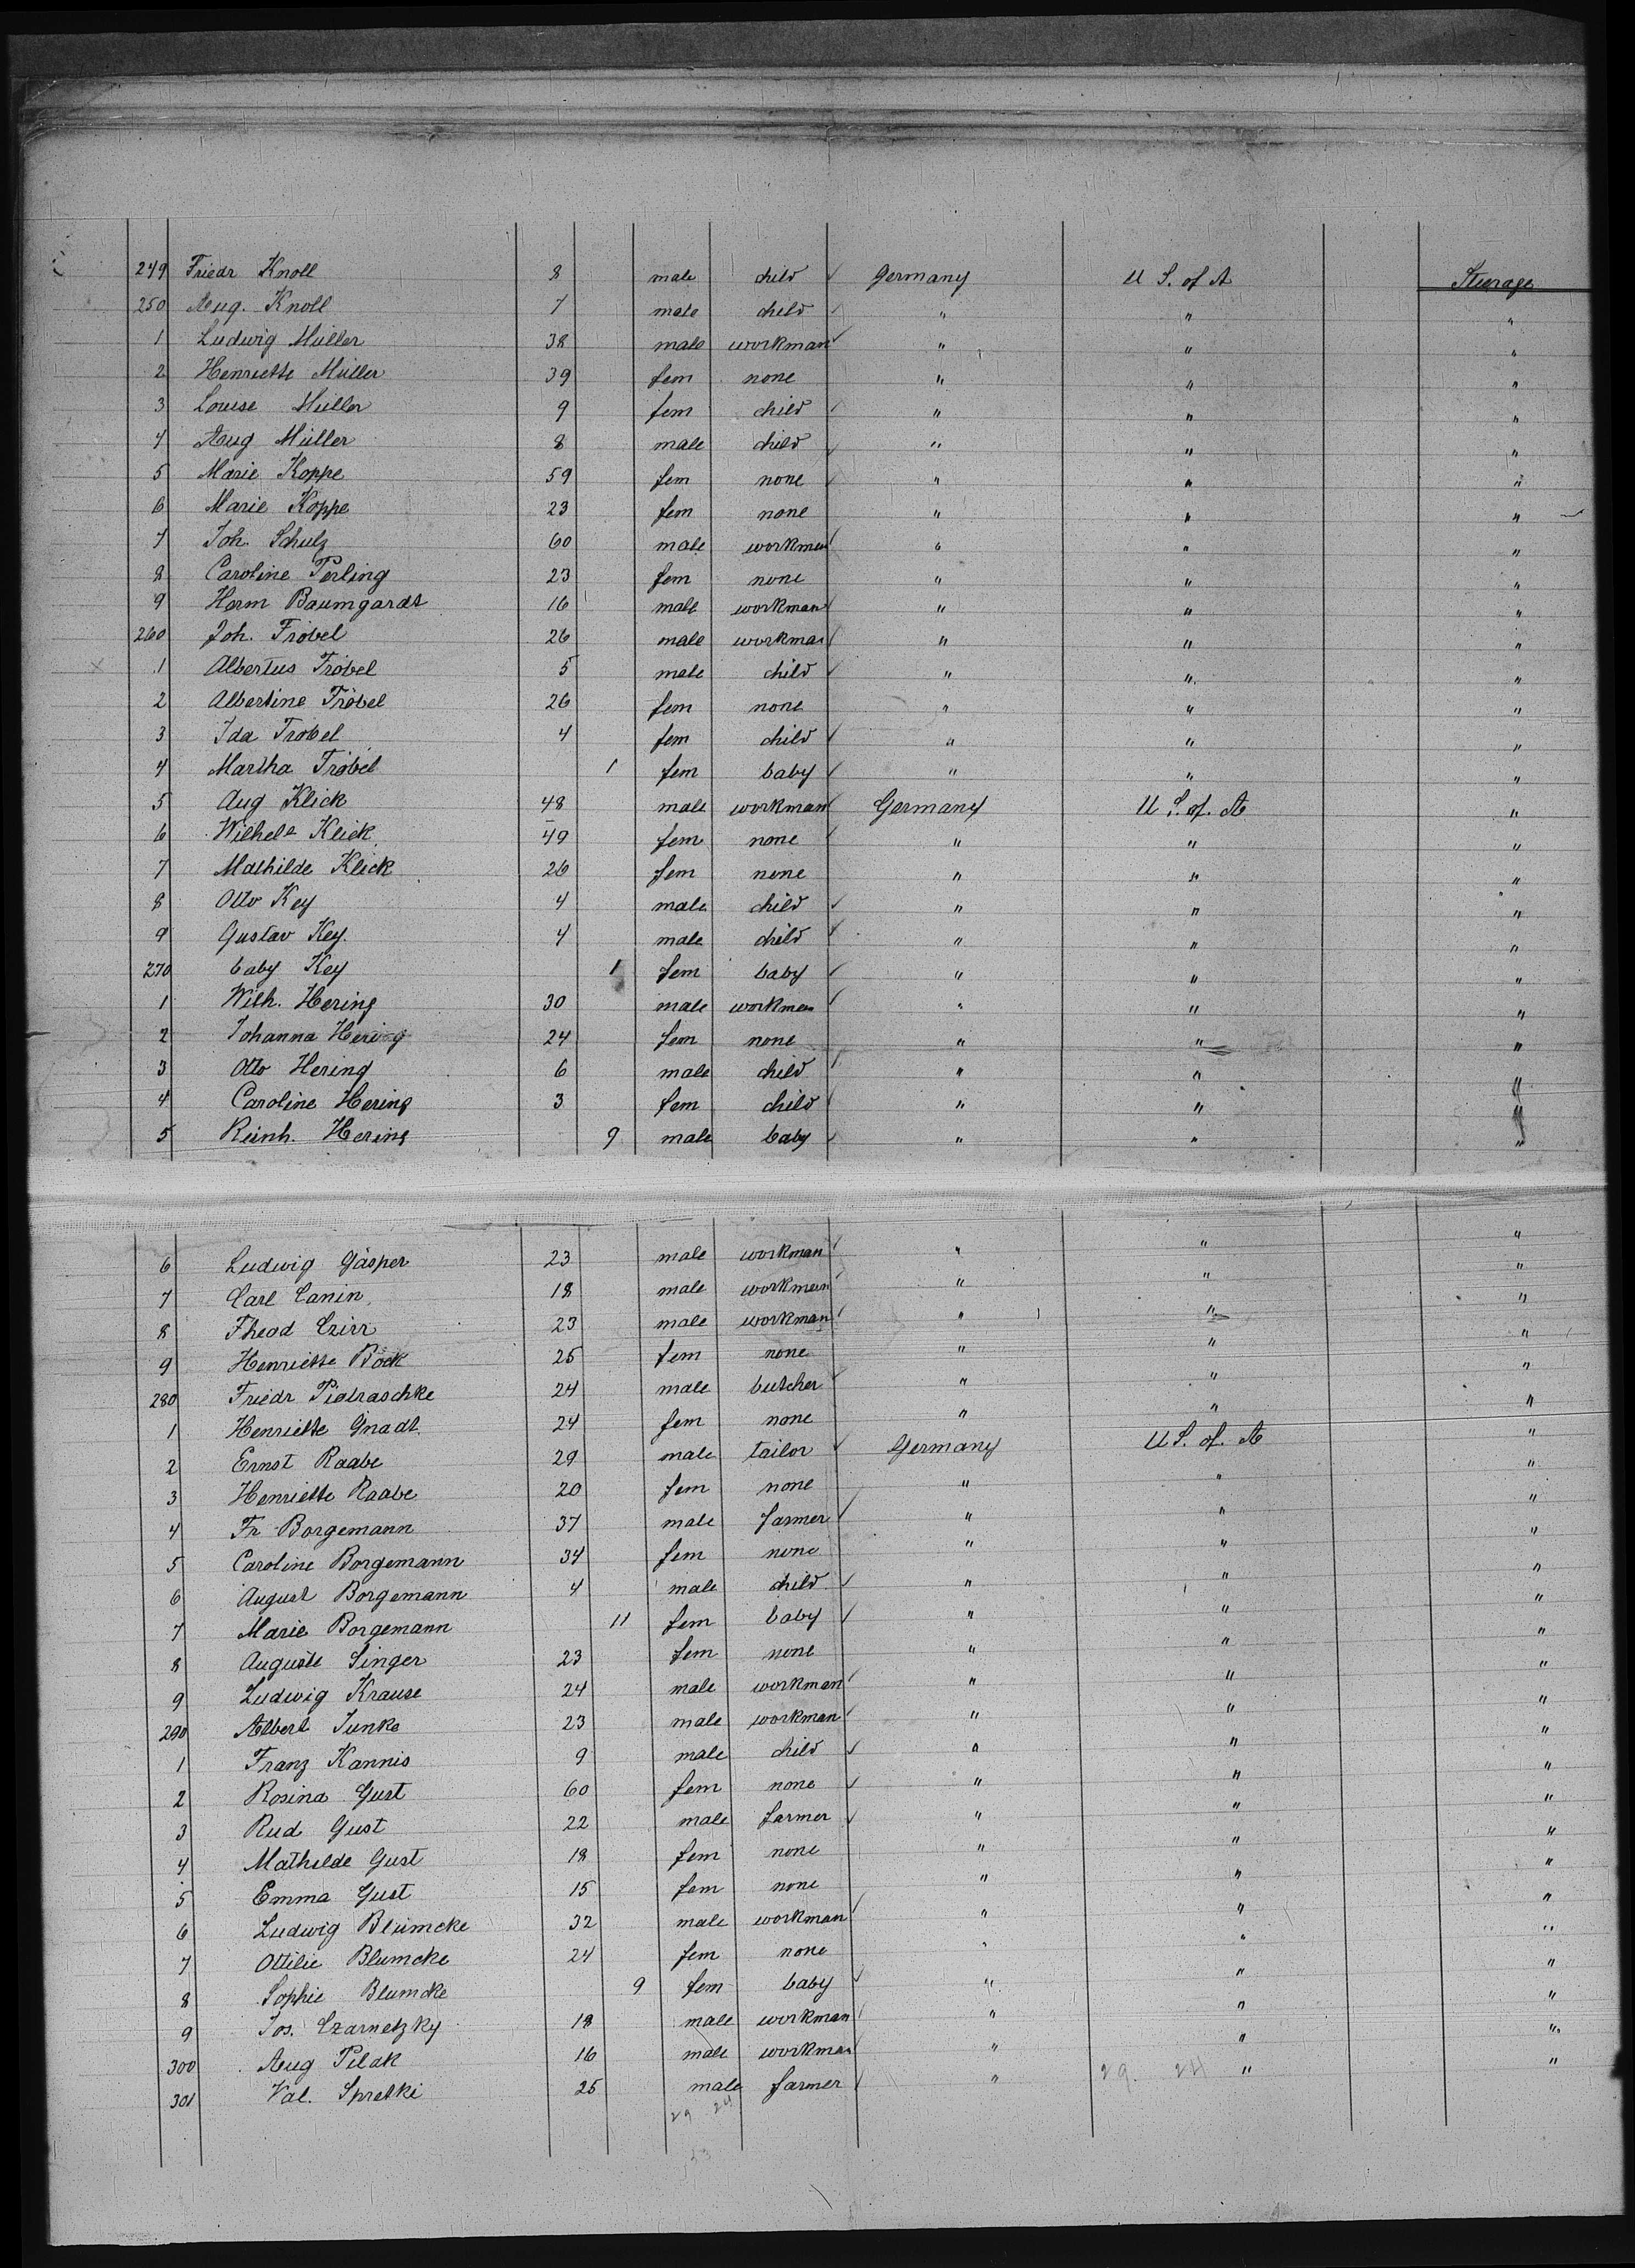 249 Friedr Knoll 8 male child ✓ Germany U S. of A Steerage
250 Aug. Knoll 7 male child ✓ " " "
1 Ludwig Müller 38 male workman ✓ " " "
2 Henriette Müller 39 fem none " " "
3 Louise Müller 9 fem child ✓ " " "
4 Aug Müller 8 male child ✓ " " "
5 Marie Koppe 59 fem none ✓ " " "
6 Marie Koppe 23 fem none " " "
7 Joh. Schulz 60 male workman ✓ " " "
8 Caroline Perling 23 fem none " " "
9 Herm Baumgardt 16 male workman ✓ " " "
260 Joh. Fröbel 26 male workman ✓ " " "
1 Albertus Fröbel 5 male child ✓ " " "
2 Albertine Fröbel 26 fem none " " "
3 Ida Fröbel 4 fem child ✓ " " "
4 Martha Fröbel 1 fem baby ✓ " " "
5 Aug Klick 48 male workman ✓ Germany U S. of. A "
6 Wilhele Klick 49 fem none " " "
7 Mathilde Klick 26 fem none " " "
8 Otto Key 4 male child ✓ " " "
9 Gustav Key. 4 male child ✓ " " "
270 baby Key 1 fem baby ✓ " " "
1 Wilh. Hering 30 male workman ✓ " " "
2 Johanna Hering 24 fem none " " "
3 Otto Hering 6 male child ✓ " " "
4 Caroline Hering 3 fem child ✓ " " "
5 Reinh. Hering 9 male baby ✓ " " "
6 Ludwig Gäsper 23 male workman ✓ " " "
7 Carl Canin 18 male workman ✓ " " "
8 Theod Czirr 23 male workman ✓ " " "
9 Henriette Böck 25 fem none " " "
280 Friedr Pietraschke 24 male butcher ✓ " " "
1 Henriette Gnadt. 24 fem none " " "
2 Ernst Raabe 29 male tailor ✓ Germany U S. of. A "
3 Henriette Raabe 20 fem none " " "
4 Fr Borgemann 37 male farmer ✓ " " "
5 Caroline Borgemann 34 fem none " " "
6 August Borgemann 4 male child ✓ " " "
7 Marie Borgemann 11 fem baby ✓ " " "
8 Auguste Singer 23 fem none " " "
9 Ludwig Krause 24 male workman ✓ " " "
290 Albert Junke 23 male workman ✓ " " "
1 Franz Kannis 9 male child ✓ " " "
2 Rosina Gust 60 fem none ✓ " " "
3 Rud Gust 22 male farmer ✓ " " "
4 Mathilde Gust 18 fem none " " "
5 Emma Gust 15 fem none " " "
6 Ludwig Blümcke 32 male workman ✓ " " "
7 Ottilie Blumcke 24 fem none " " "
8 Sophie Blumcke 9 fem baby ✓ " " "
9 Jos. Czarnetzky 18 male workman ✓ " " "
300 Aug Pilak 16 male workman ✓ " " "
301 Val. Spretki 25 male farmer ✓ " 29. 24 " "
29 24